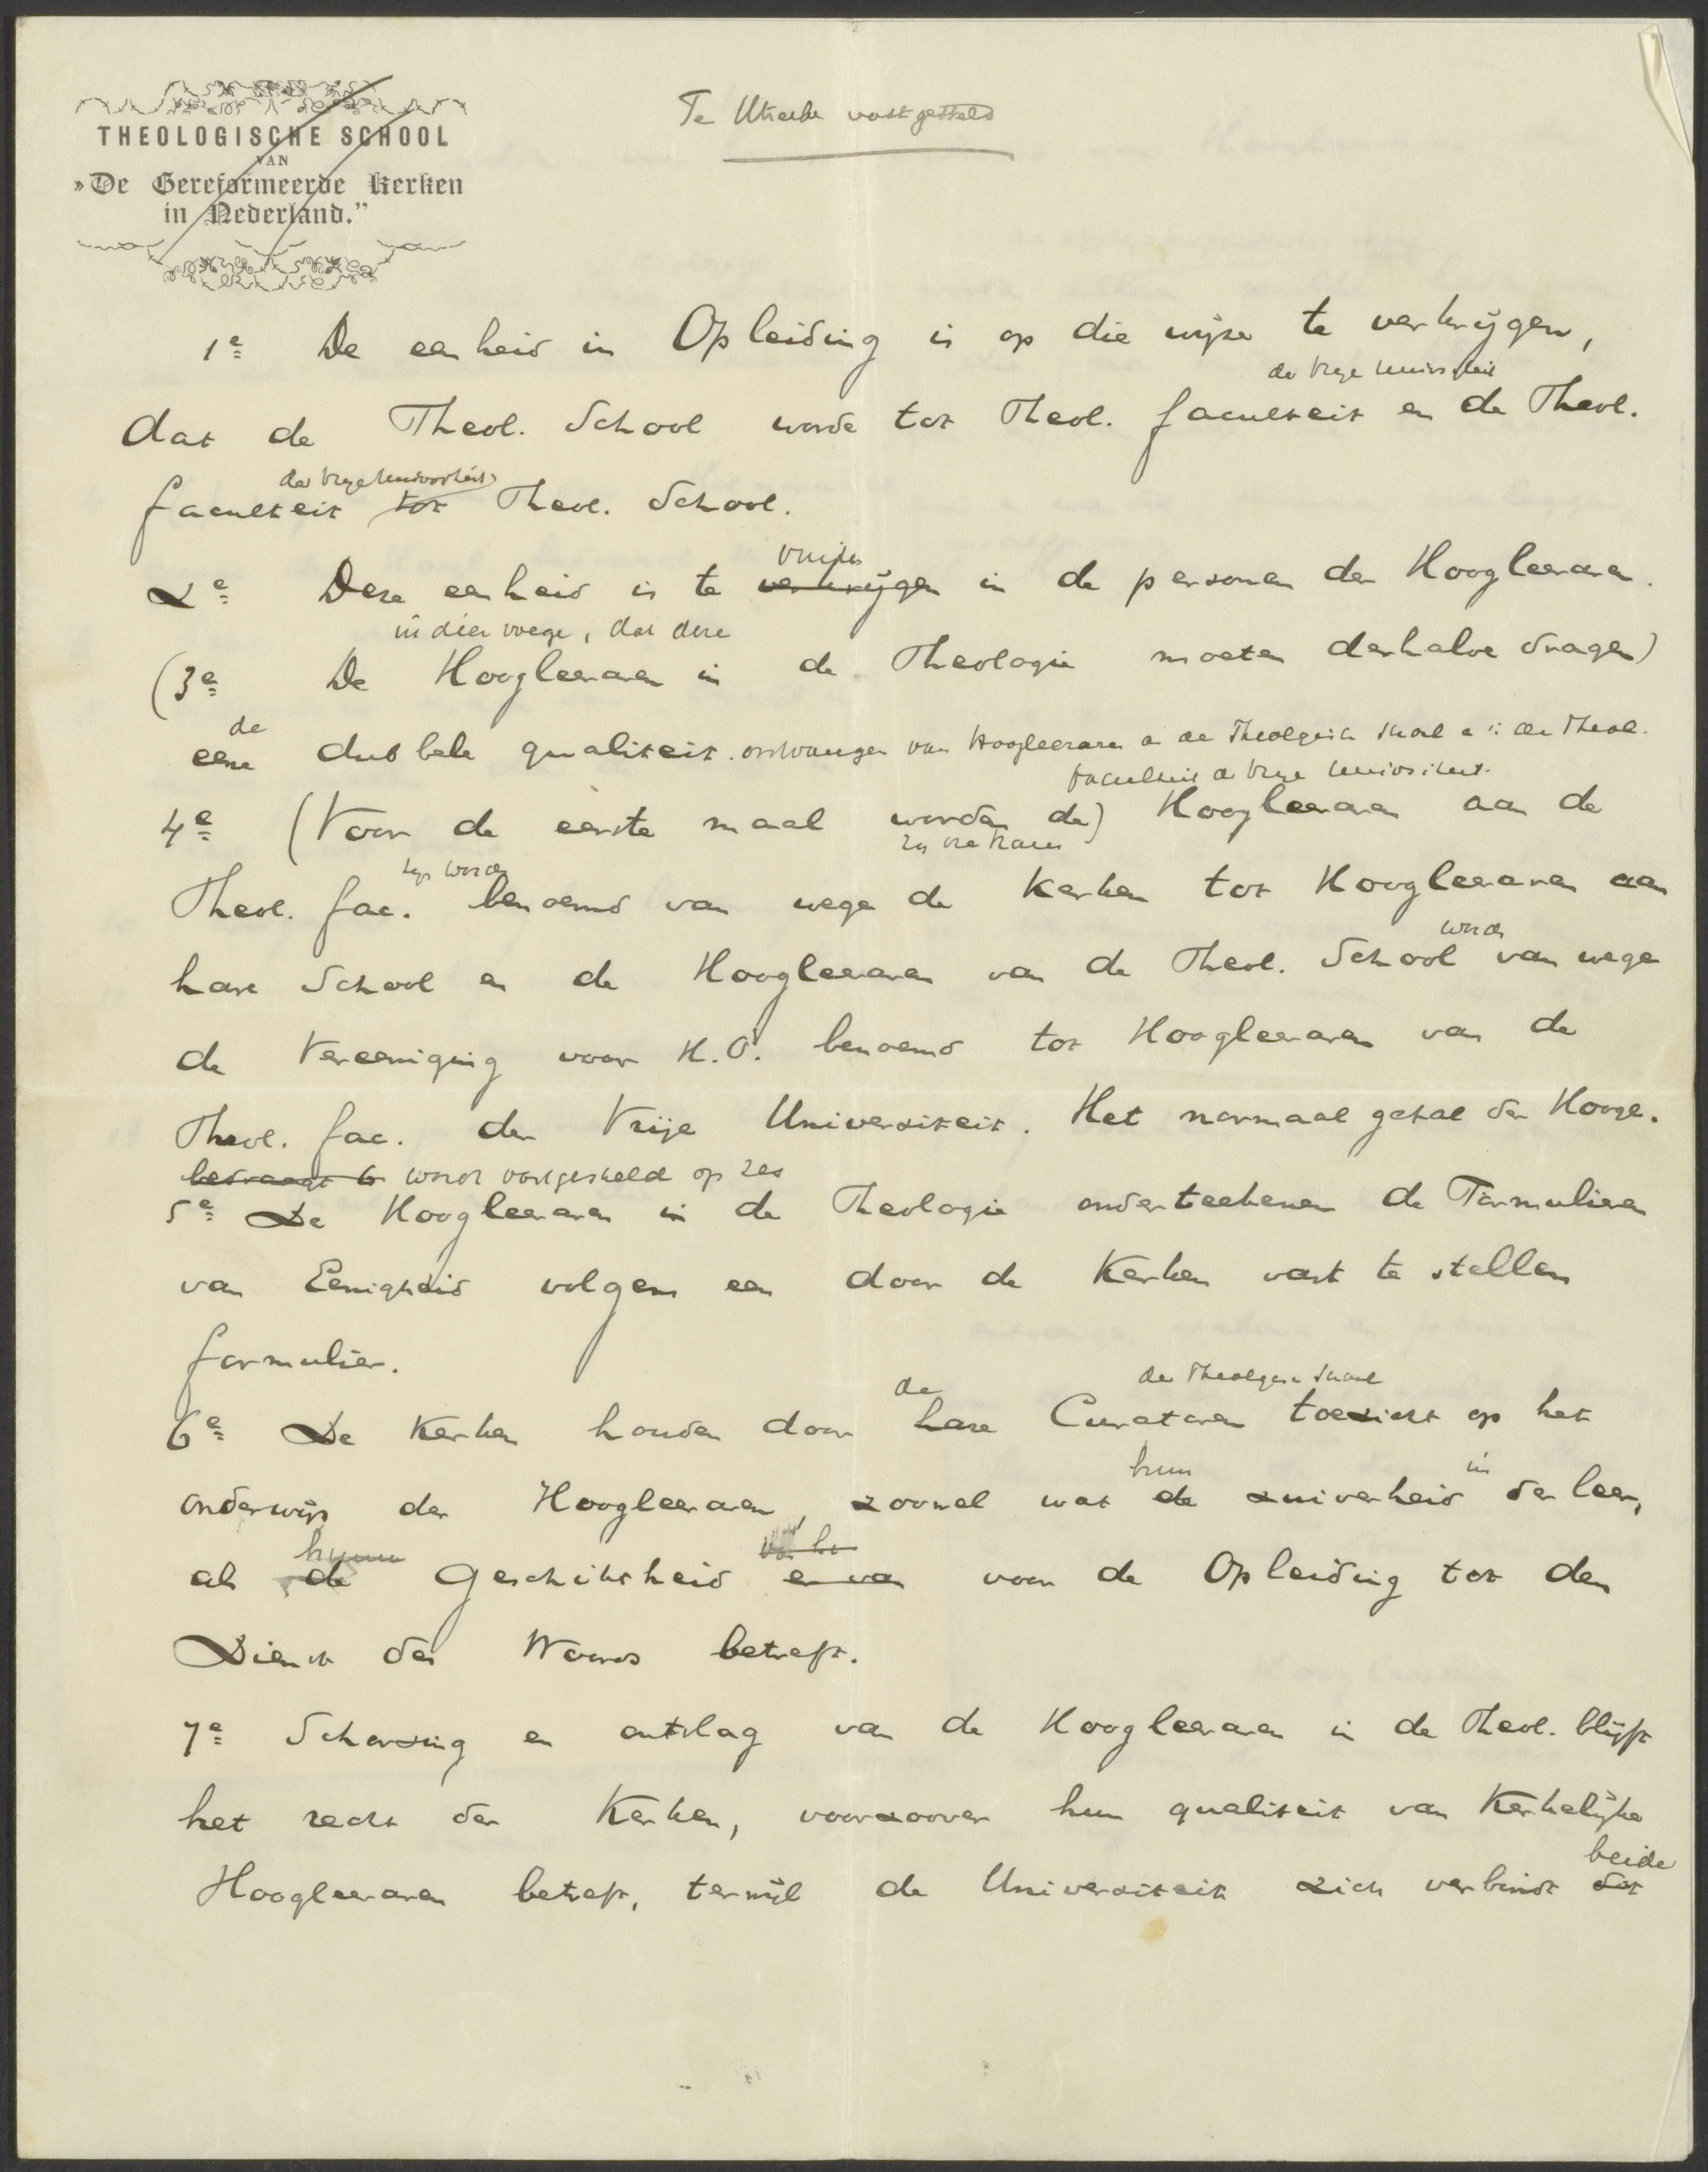 THEOLOGISCHE SCHOOL
VAN
»De Gereformeerde Kerken
in Nederland.”
Te Utrecht vastgesteld
1e De eenheid in Opleiding is op die wijze te verkrijgen,
der Vrije Universiteit
dat de Theol. School worde tot Theol. faculteit en de Theol.
der Vrije Universiteit
faculteit tot Theol. School.
vinden
2e Deze eenheid is te verkrijgen in de personen der Hoogleeraren.
in dier voege, dat deze
(3e De Hoogleeraren in de Theologie moeten derhalve dragen)
de
eene dubbele qualiteit. ontvangen van Hoogleeraren a. de Theologische School en in de Theol.
faculteit der Vrije Universiteit.
4e (Voor de eerste maal worden de) Hoogleeraren aan de
worden
Theol. fac. benoemd van wege de Kerken tot Hoogleeraren aan
worden
hare School en de Hoogleeraren van de Theol. School van wege
de Vereeniging voor H.O. benoemd tot Hoogleeraren van de
Theol. fac. der Vrije Universiteit. Het normaal getal der Hoogl.
bedraagt 6 wordt vastgesteld op zes
5e De Hoogleeraren in de Theologie onderteekenen de Formulieren
van Eenigheid volgens een door de Kerken vast te stellen
formulier.
de der Theologische School
6e De Kerken houden door hare Curatoren toezicht op het
hun in
onderwijs der Hoogleeraren, zoowel wat de zuiverheid der leer,
hunne
als de Geschiktheid er van voor de Opleiding tot den
Dienst des Woords betreft.
7e Schorsing en ontslag van de Hoogleeraren in de Theol. blijft
het recht der Kerken, voorzoover hun qualiteit van Kerkelijke
beide
Hoogleeraren betreft, terwijl de Universiteit zich verbindt dit